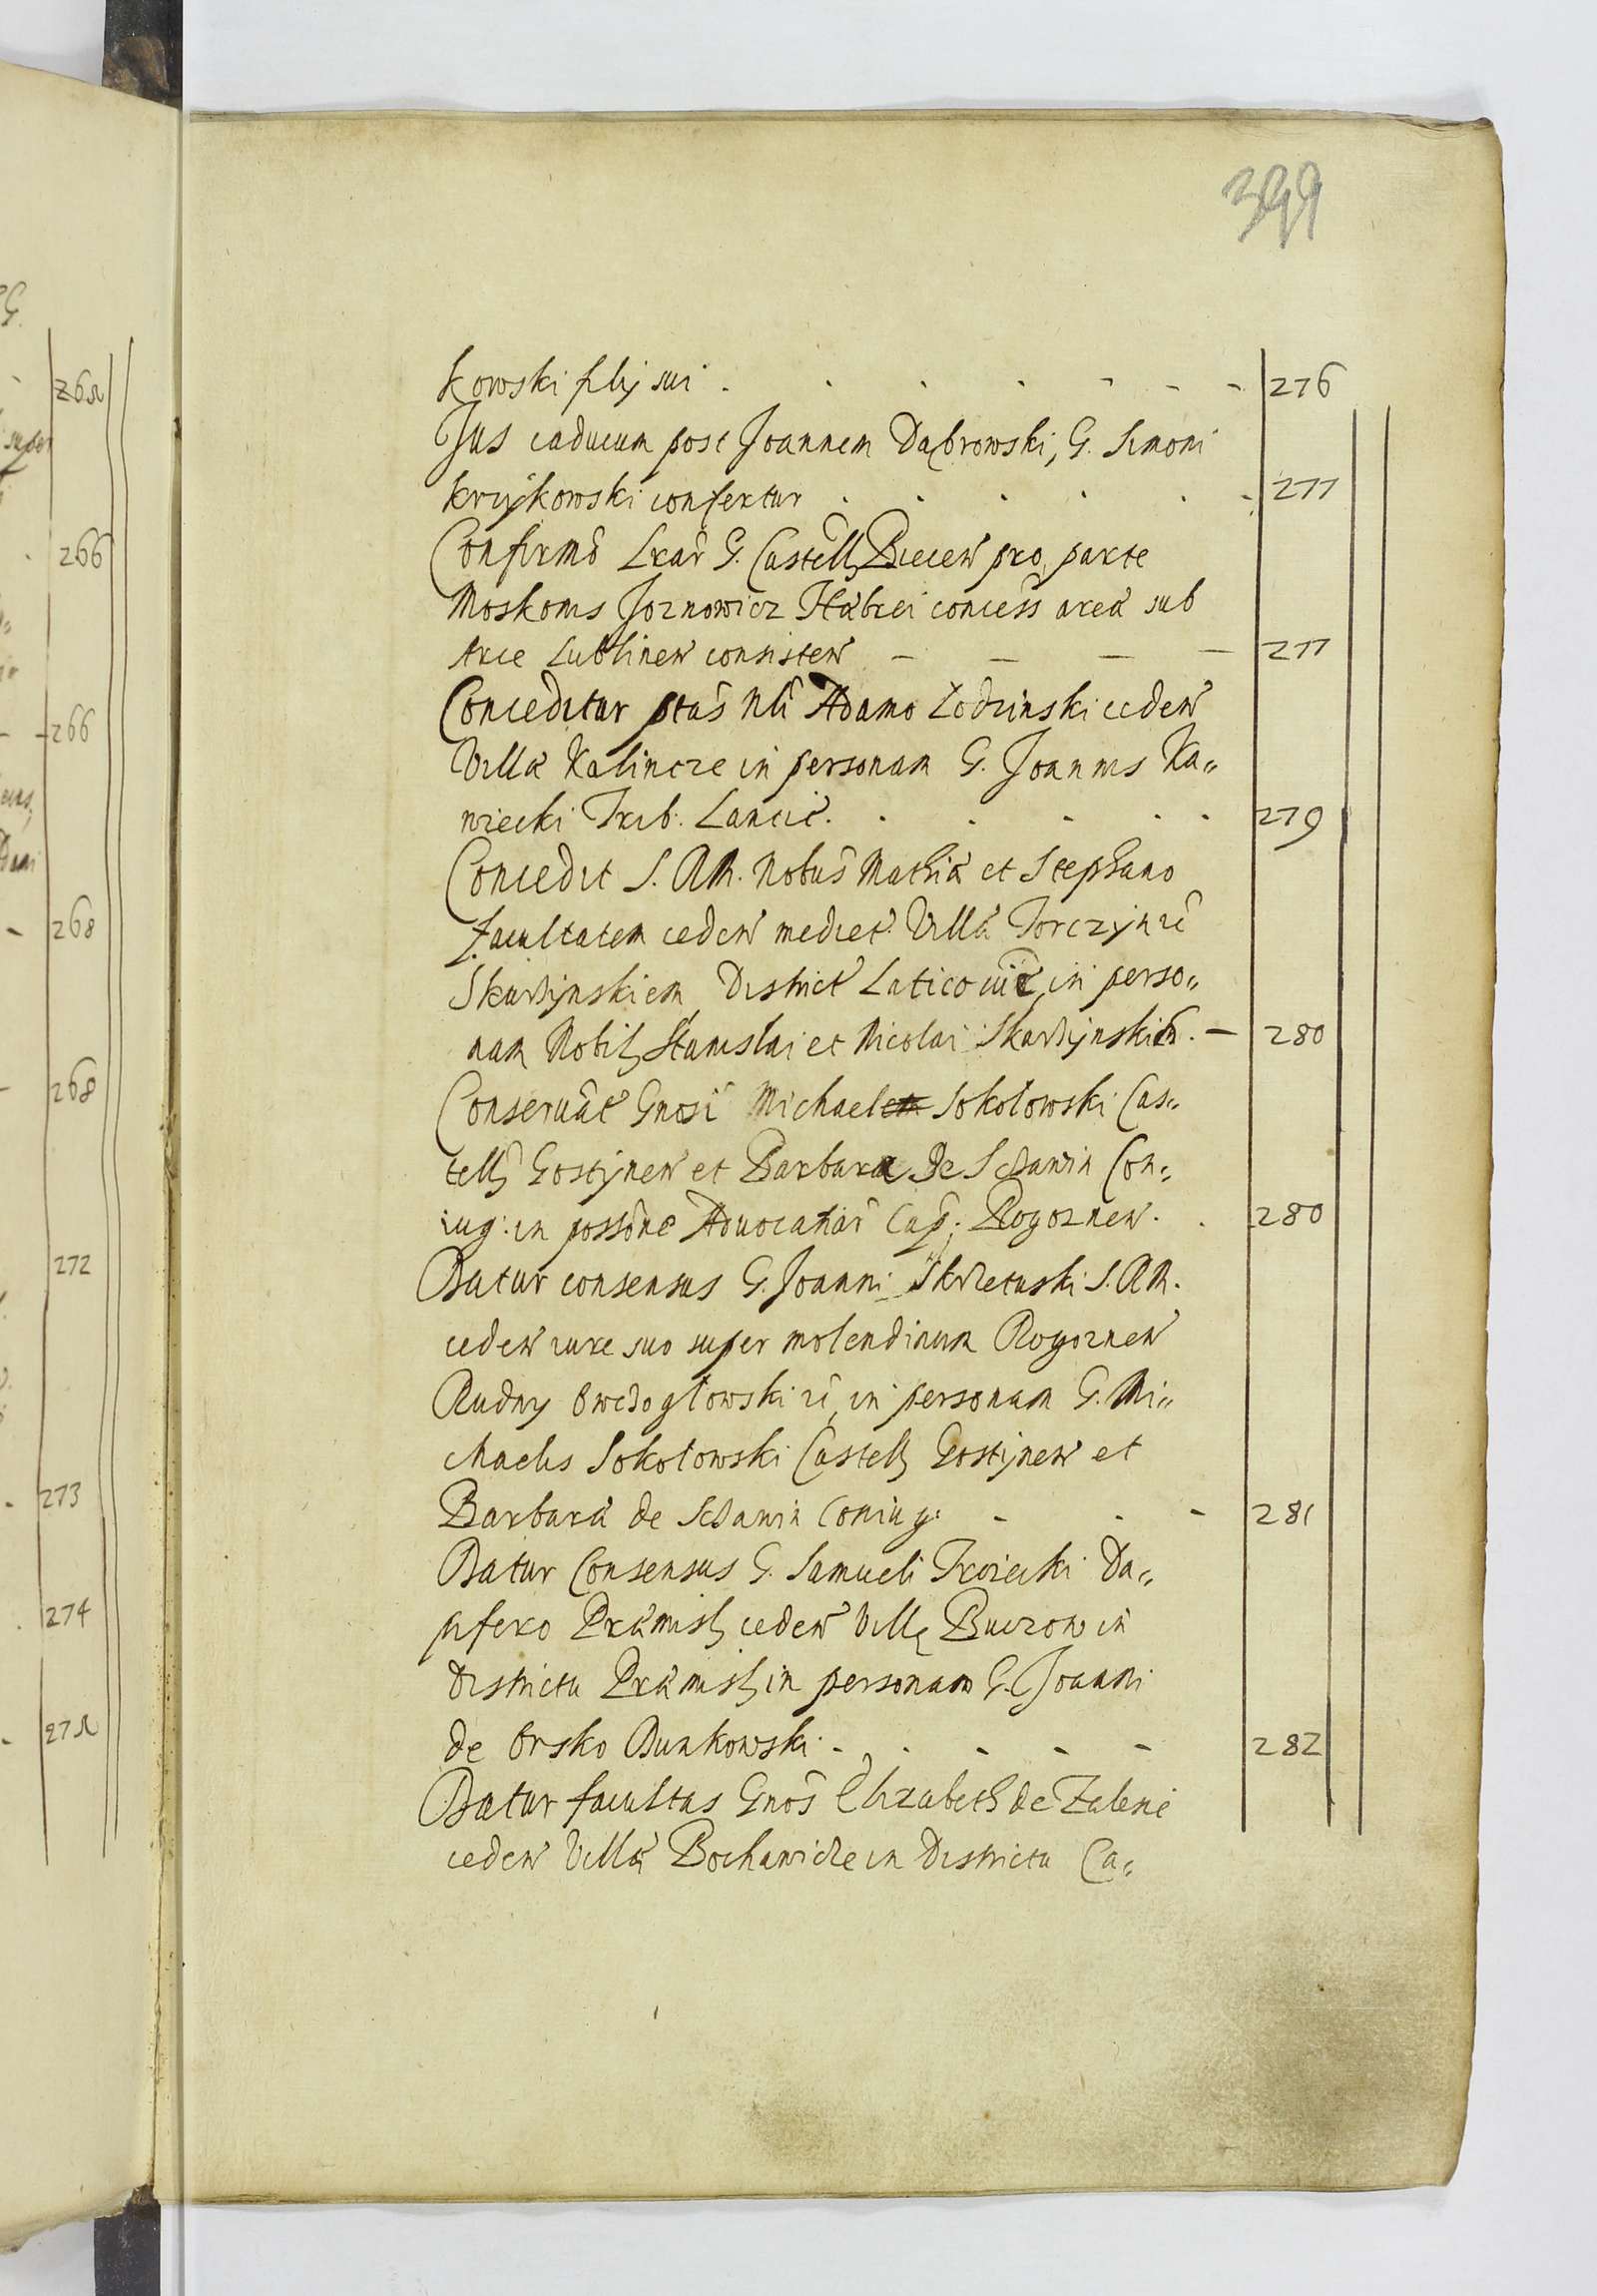 399
kowski filij sui . . . . - - - 276
Jus caducum post Joannem Dąbrowski, G. Simoni
Krzykowski confertur . . . . . . 277
Confirmõ Lrar̃ G. Castell Biecen pro parte
Moskonis Joznowicz Hæbrei concess areæ sub
Arce Lublinen consisten — — — — 277
Conceditur ptas̃ Nli Adamo Łodzinski ceden
Villa Kalincze in personam G. Joannis Ka„
wiecki Trib. Lancic̃. . . . . . 279
Concedit S. R. M. Nobus̃ Mathiæ et Stephano
facultatem ceden mediet. Villæ Torczyn zẽ
Skarżynskiem District Laticouie in perso„
nam Nobil Stanislai et Nicolai Skarżynskich. — 280
Conseruãt Gnosi Michael Sokołowski Cas„
tell Gostynen et Barbara De Sczawin Con„
iug: in possõne Aduocatiæ Cap. Rogoznen. . 280
Datur consensus G. Joanni Skrzetuski S. R. M.
ceden iure suo super molendinum Rogoznen
Rudny Owczogłowski zẽ, in personam G. Mi„
chaelis Sokołowski Castell Gostynen et
Barbaræ de Sczawin Coniug: - - - 281
Datur Consensus G. Samueli Trojecki Da„
pifero Præmisl ceden Villę Buczow in
Districtu Præmisl in personam G. Joanni
de Orsko Bunkowski - . - - - 282
Datur facultas Gnos̃ Elizabeth de Zalesie
ceden Villæ Bochanicze in Districtu Ca„
266
266
268
268
272
273
274